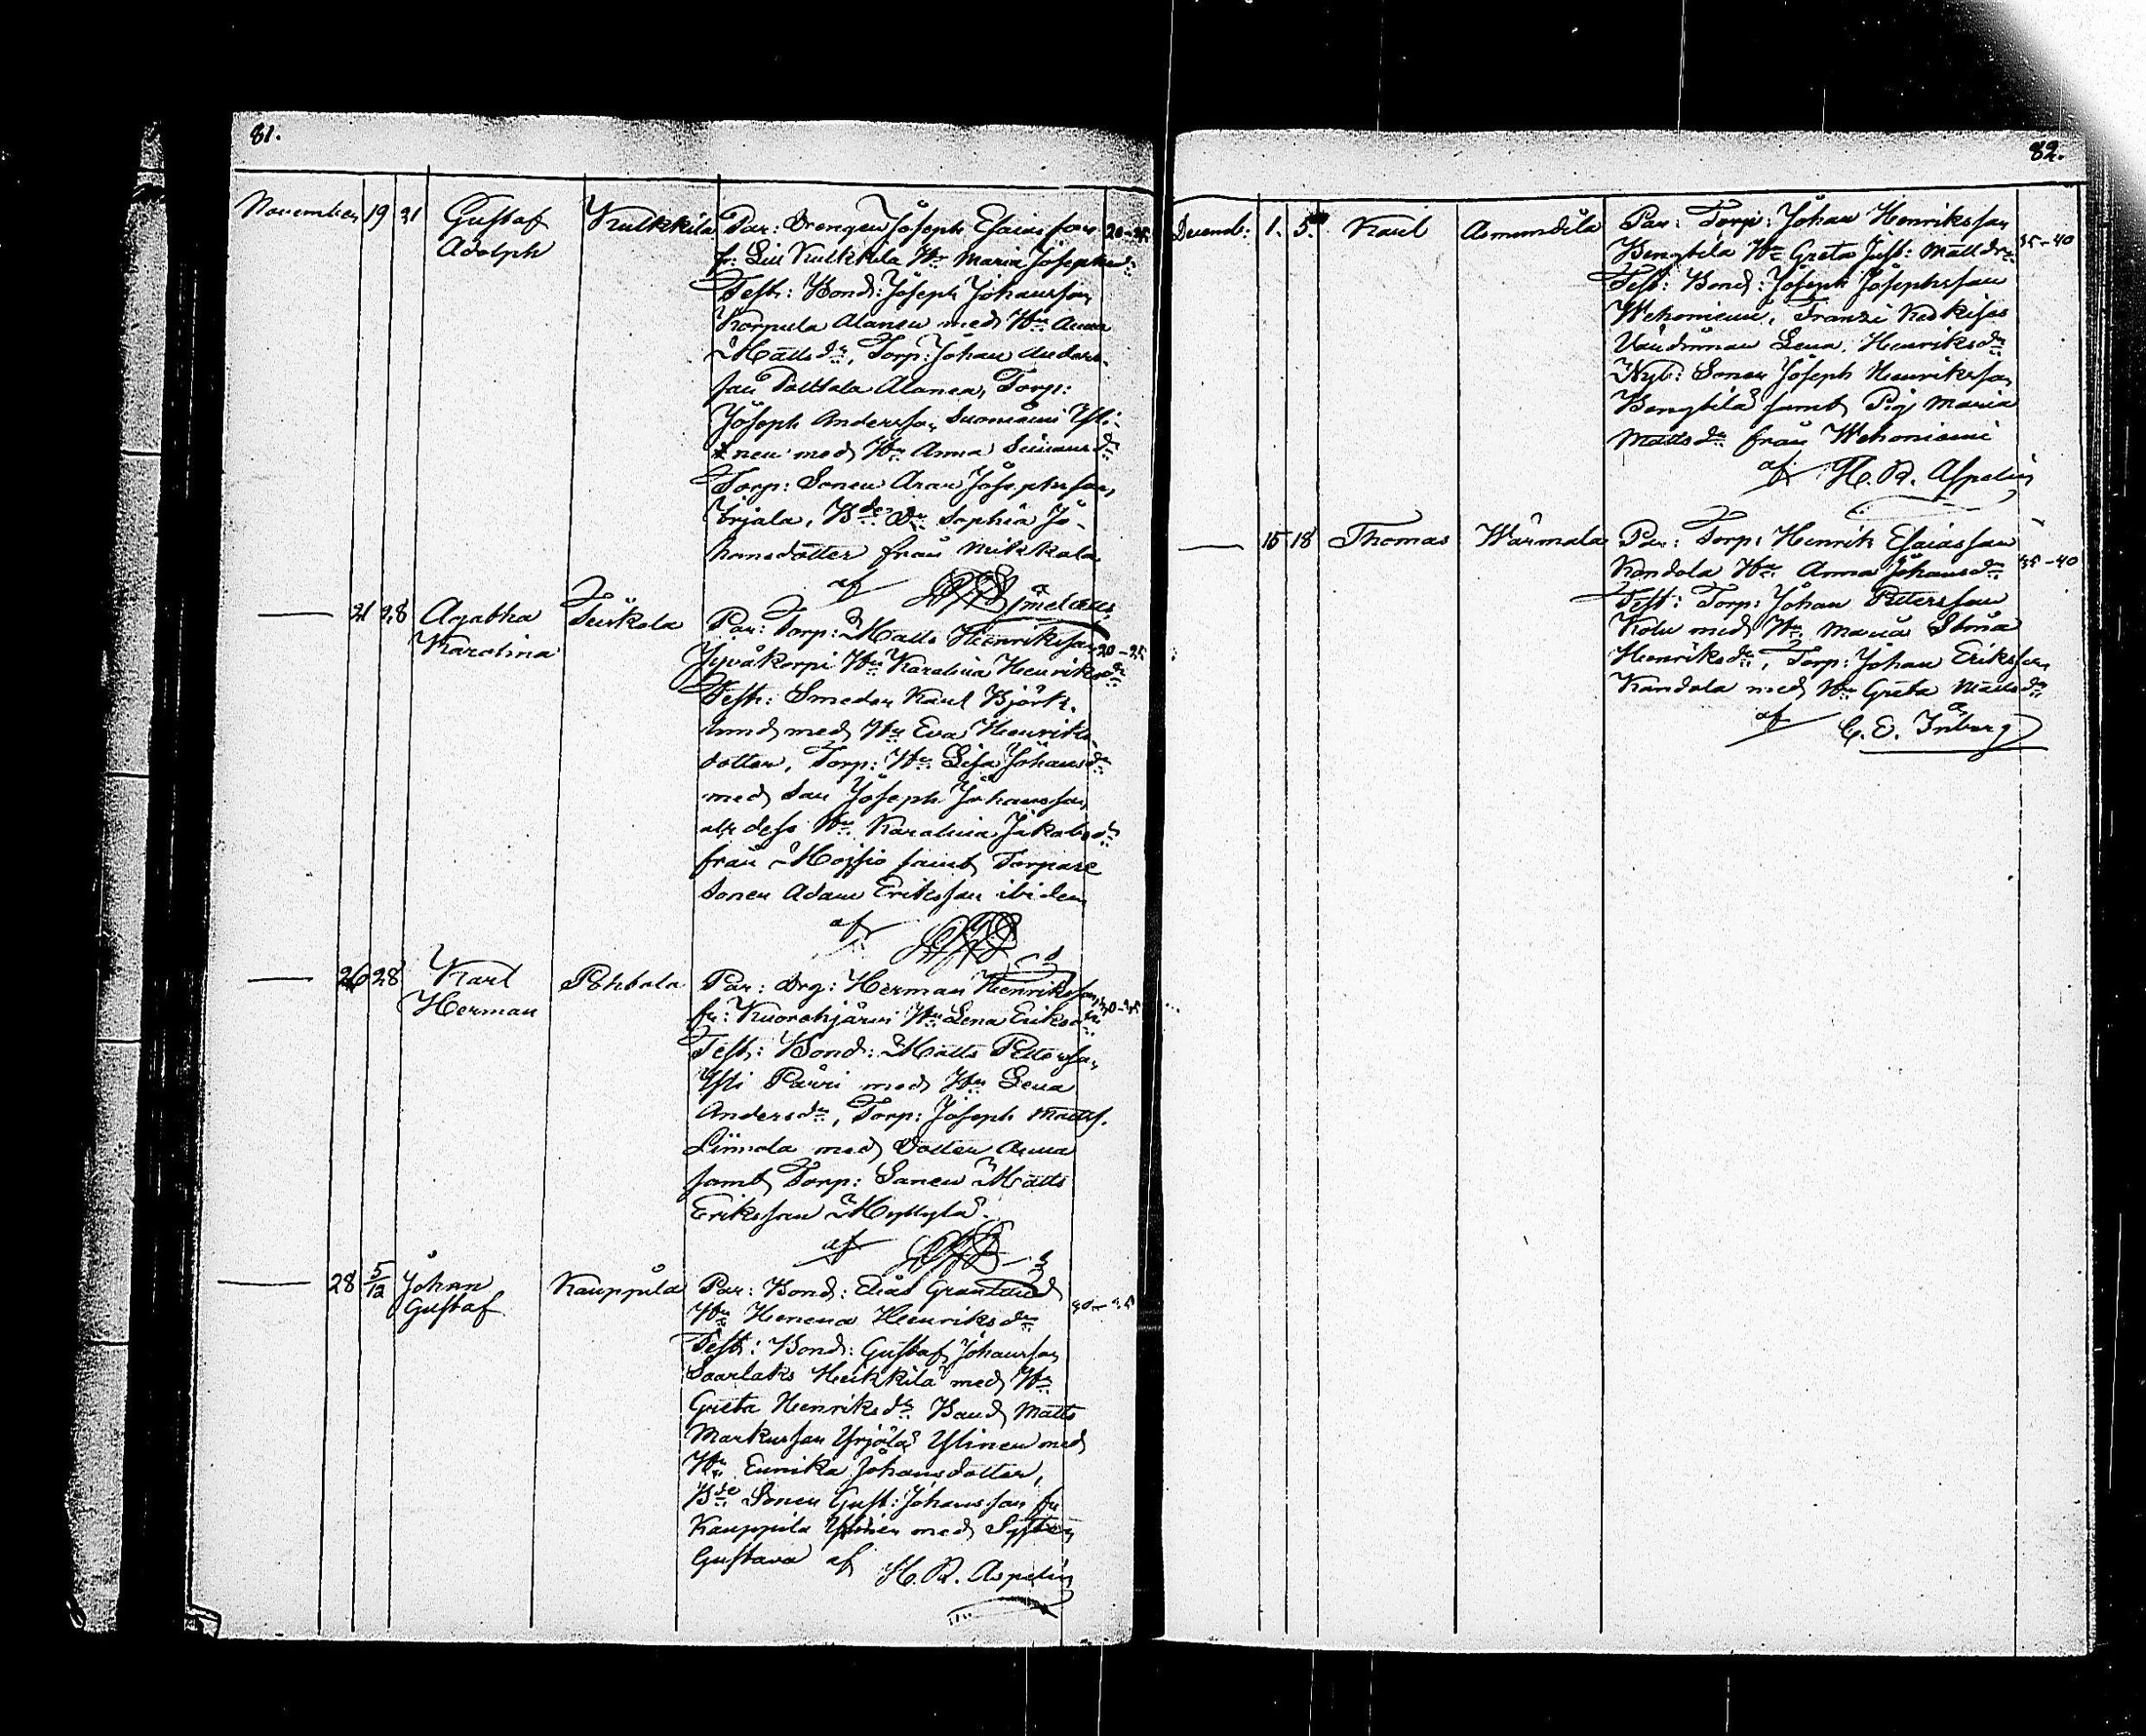 81.
November 19 21 Gustaf Adolph Kulkkila Par: Drengen Joseph Esaiasson 20-25
fr: Kulkkila Hu Maria Josephsdr
Test: Bond: Joseph Johansson
Korpula Alanen med Hu Anna
Mattsdr, Torp: Johan Anders-
son Alanen, Torp:
Joseph Andersson Suoniemi Yli-
nen med Hu Anna
Torp: Sonen Josephsson
Yrjala, Bde Dr Sophia Jo-
hansdotter från Mikkola
af
— 21 28 Agatha Karolina Par: Torp: Matts Henriksson 20-25
Hu Karolina Henriksdr
Test: Smeden Karl Björk-
lund med Hu Eva Henriks-
dotter, Torp: Hu Lisa Johansdr
med Son Joseph Johansson
och dess Hu Karolina Jakobsdr
från Moisio samt Torpare
Sonen Adam Eriksson ibidem
af
— 26 28 Karl Herman Pohtola Par: Drg: Herman Henriksson 30-35
fr: Kuorehjärvi Hu Lena Eriksdr
Test: Bond: Matts Pettersson
Yli Parri med Hu Lena
Andersdr, Torp: Joseph Matts.
Linnola med Dotter Anna
samt Torp: Sonen Matts
Eriksson Myllylä.
af
— 28 5/12 Johan Gustaf Kauppila Par: Bond: Elias Granlund
Hu Henriksdr
Test: Bond: Gustaf Johansson
Saarlaks Heikkilä med Hu
Greta Henriksdr Bond Matts
Markusson Yrjölä Ylinen med
Hu Eunika Johansdotter,
Bde Sonen Gust: Johansson fr
Kauppila Ylinen med Syster
Gustava af H. R. Aspelin
82.
Decemb: 1. 5. Karl Asmundila Par: Torp: Johan Henriksson
Bengtila Hu Greta Just: Mattsdr 35-40
Test: Bond: Joseph Josephsson
Wehoniemi,
Lena Henriksdr
Nyb: Sonen Joseph Henriksson
Bengtilä samt Pig Maria
Mattsdr från Wehoniemi
af H. R. Aspelin
— 15 18 Thomas Wärmala Par: Torp: Henrik Esaiasson
Kandola Hu Anna Johansdr 35-40
Test: Torp: Johan Pettersson
med Hu Maria Stina
Henriksdr, Torp: Johan Eriksson
Kandola med Hu Greta Mattsdr
af G. E. Inberg